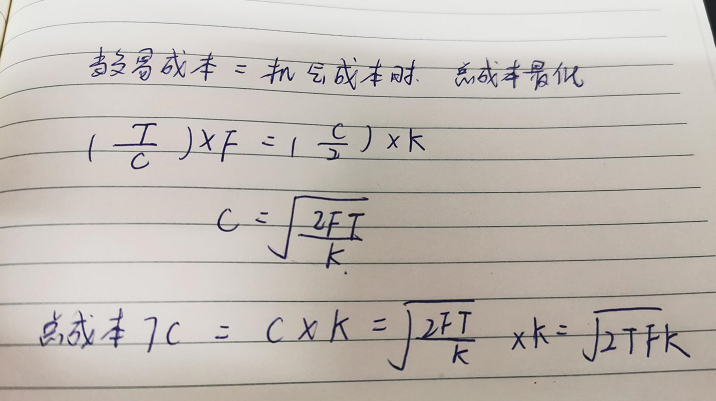 当交易成本 = 机会成本时 总成本最低
( T/C ) × F = ( C/2 ) × K
C = √(2FT/K)
总成本 TC = C × K = √(2FT/K) × K = √2TFK